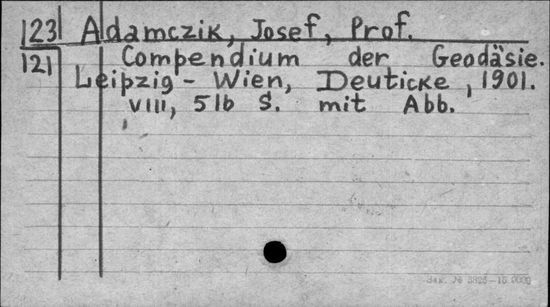 123 Adamczik, Josef, Prof.
121 Compendium der Geodäsie.
Leipzig - Wien, Deuticke, 1901.
VIII, 516 S. mit Abb.